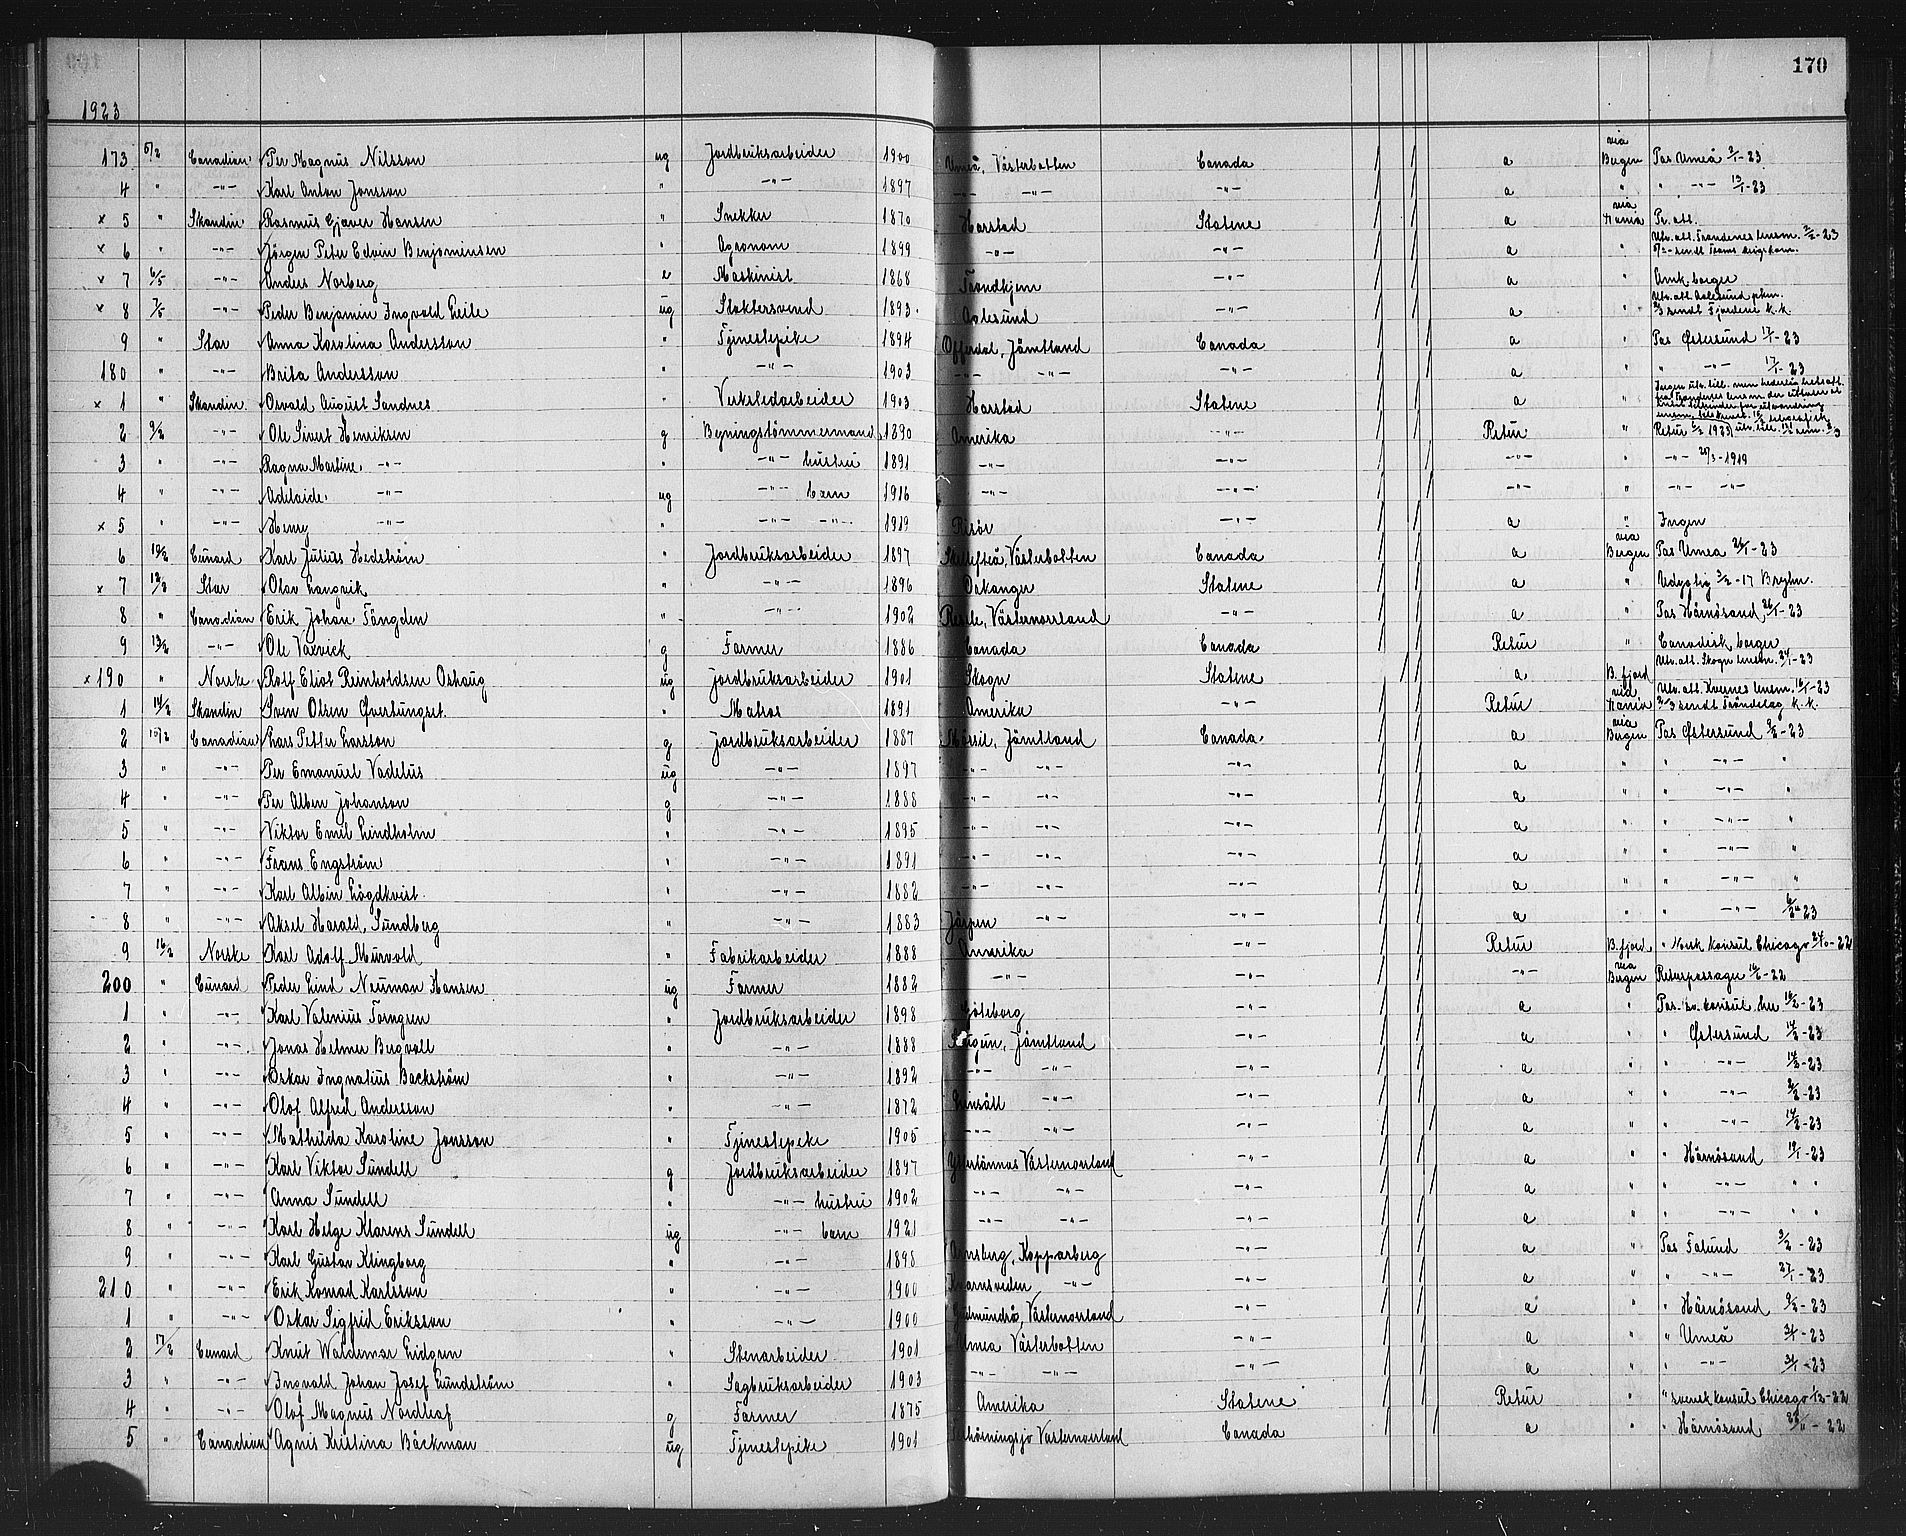 170
1923
173 5/2 Canadian Per Magnus Nilsson ug Jordbruksarbeider 1900 Umeå, Västerbotten Canada a via Bergen Pas Umeå 2/1-23
4 " -"- Karl Anton Jonsson " -"- 1897 -"- -"- -"- a " " -"- 13/1-23
x 5 " Skandin Rasmus Gjaver Hansen " Snekker 1870 Harstad Statene a via Kania Pr. att.
x 6 " -"- Jörgen Peter Edvin Benjaminsen " Agronom 1899 -"- -"- a " Utv. att. Trondenes lensm. 2/2-23
x 7 6/5 -"- Anders Norberg e Maskinist 1868 Trondhjem -"- a " Amk. borger
x 8 7/5 -"- Peder Benjamin Ingvald Leite ug Slaktersvend 1893 Aalesund -"- a " Utv. att. Aalesund pkm. sendt Fjordene k.k.
9 " Star Anna Karolina Andersson " Tjenestepike 1894 Offerdal, Jämtland Canada a " Pas Østersund 17/1-23
180 " -"- Brita Andersson " -"- 1903 -"- -"- -"- a " " -"- 17/1-23
x 1 " Skandin. Osvald August Sandnes " Verkstedarbeider 1903 Harstad Statene a "
2 9/2 -"- Ole Sivert Henriksen g Bygningstömmermand 1890 Amerika -"- Retur "
3 " -"- Ragna Martine -"- " -"- hustru 1891 -"- -"- -"- " -"- 20/3-1919
4 " -"- Adelaide -"- ug -"- barn 1916 -"- -"- -"- " -"- -"-
x 5 " -"- Henry -"- " -"- -"- 1919 Risör -"- a " Ingen
6 10/2 Cunard Karl Julius Hedström " Jordbruksarbeider 1897 Skellefteå, Västerbotten Canada a via Bergen Pas Umea 26/1-23
x 7 12/2 Star Olav Langvik " -"- 1896 Orkanger Statene a " Udygtig 3/2-17 Bryhn.
8 " Canadian Erik Johan Tängden " -"- 1902 Resele, Västernorrland -"- a " Pas Härnösand 26/1-23
9 13/2 -"- Ole Vaevick g Farmer 1886 Canada Canada Retur " Canadisk borger
x 190 " Norske Rolf Eliot Reinholdsen Oshaug ug jordbruksarbeider 1901 Skogn Statene a B.fjord Utv. att. Skogn lensm. 24/1-23
1 14/2 Skandin Sven Olsen Øvertungset. " Matros 1891 Amerika " Retur via Kania Utv. att. Kvernes lensm. 16/1-23 sendt Trøndelag k.k.
2 15/2 Canadian Lars Petter Larsson g jordbruksarbeider 1887 Mörsil, Jämtland Canada a via Bergen Pas Østersund 2/2-23
3 " -"- Per Emanuel Vadelius ug -"- 1897 -"- -"- -"- a " " -"- "
4 " -"- Per Albin Johanson g -"- 1888 -"- -"- -"- a " " -"- "
5 " -"- Viktor Emil Lindholm " -"- 1895 -"- -"- -"- a " " -"- "
6 " -"- Frans Engström " -"- 1891 -"- -"- -"- a " " -"- "
7 " -"- Karl Albin Lögdkvist. " -"- 1882 -"- -"- -"- a " " -"- "
8 " -"- Aksel Harald Sundberg " -"- 1883 Järpen -"- -"- a " " -"- 6/2-23
9 16/2 Norske Karl Adolf Murvold " Fabrikarbeider 1888 Amerika -"- Retur B.fjord " Norsk konsul Chicago 24/10-22
200 " Cunard Peder Lind Neuman Hansen ug Farmer 1882 -"- -"- -"- via Bergen Returpassager 16/6-22
1 " -"- Karl Valenius Torngren " Jordbruksarbeider 1898 Göteborg -"- a " Pas. sv. konsul her 16/2-23
2 " -"- Jonas Helmer Bergvall " -"- 1888 Ragun, Jämtland -"- a " " Østersund 14/2-23
3 " -"- Oskar Ingnatius Backström " -"- 1892 -"- -"- -"- a " " -"- 14/2-23
4 " -"- Olof Alfred Andersson " -"- 1872 -"- -"- a " " -"- 2/2-23
5 " -"- Mathilda Karoline Jonsson " Tjenestepike 1905 -"- -"- -"- a " " -"- 14/2-23
6 " -"- Karl Viktor Sundell g Jordbruksarbeider 1897 Ytterlännas Västernorrland -"- a " " Härnösand 19/1-23
7 " -"- Anna Sundell " -"- hustru 1902 -"- -"- -"- a " " -"- " "
8 " -"- Karl Helge Klarens Sundell ug -"- barn 1921 -"- -"- -"- a " " -"- " "
9 " -"- Karl Gustav Klingborg " -"- 1898 Arnsberg, Kopparberg -"- a " Pas Falund 3/2-23
210 " -"- Erik Konrad Karlsson " -"- 1900 Kvarnsveden -"- -"- a " " -"- 27/1-23
1 " -"- Oskar Sigfrid Eriksson " -"- 1900 Gudmundrå, Västernorrland -"- a " " Härnösand 9/2-23
2 17/2 Cunard Knut Waldemar Lidgren " Stenarbeider 1901 Umea Västerbotten -"- a " " Umeå 31/1-23
3 " -"- Ingvald Johan Josef Lundström " Sagbruksarbeider 1903 -"- -"- -"- a " " -"- 31/1-23
4 " -"- Olof Magnus Nordleaf g Farmer 1875 Amerika Statene Retur " " svensk konsul Chicago 1/12-22
5 " Canadian Agnes Kristina Bäckman ug Tjenestepike 1901 Västernorrland Canada a " " Härnösand 28/11-22